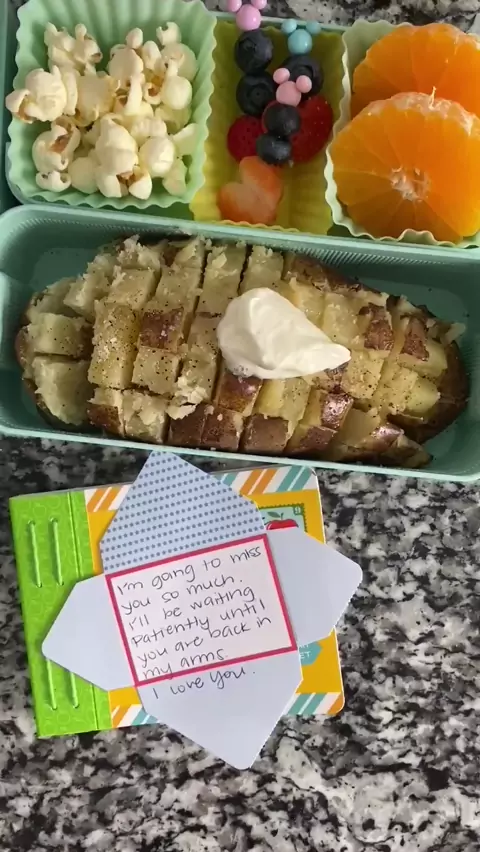 I'm gang to miss
you so much.
I'll be waiting
patiently until
you are back in
my arms.
I love you.